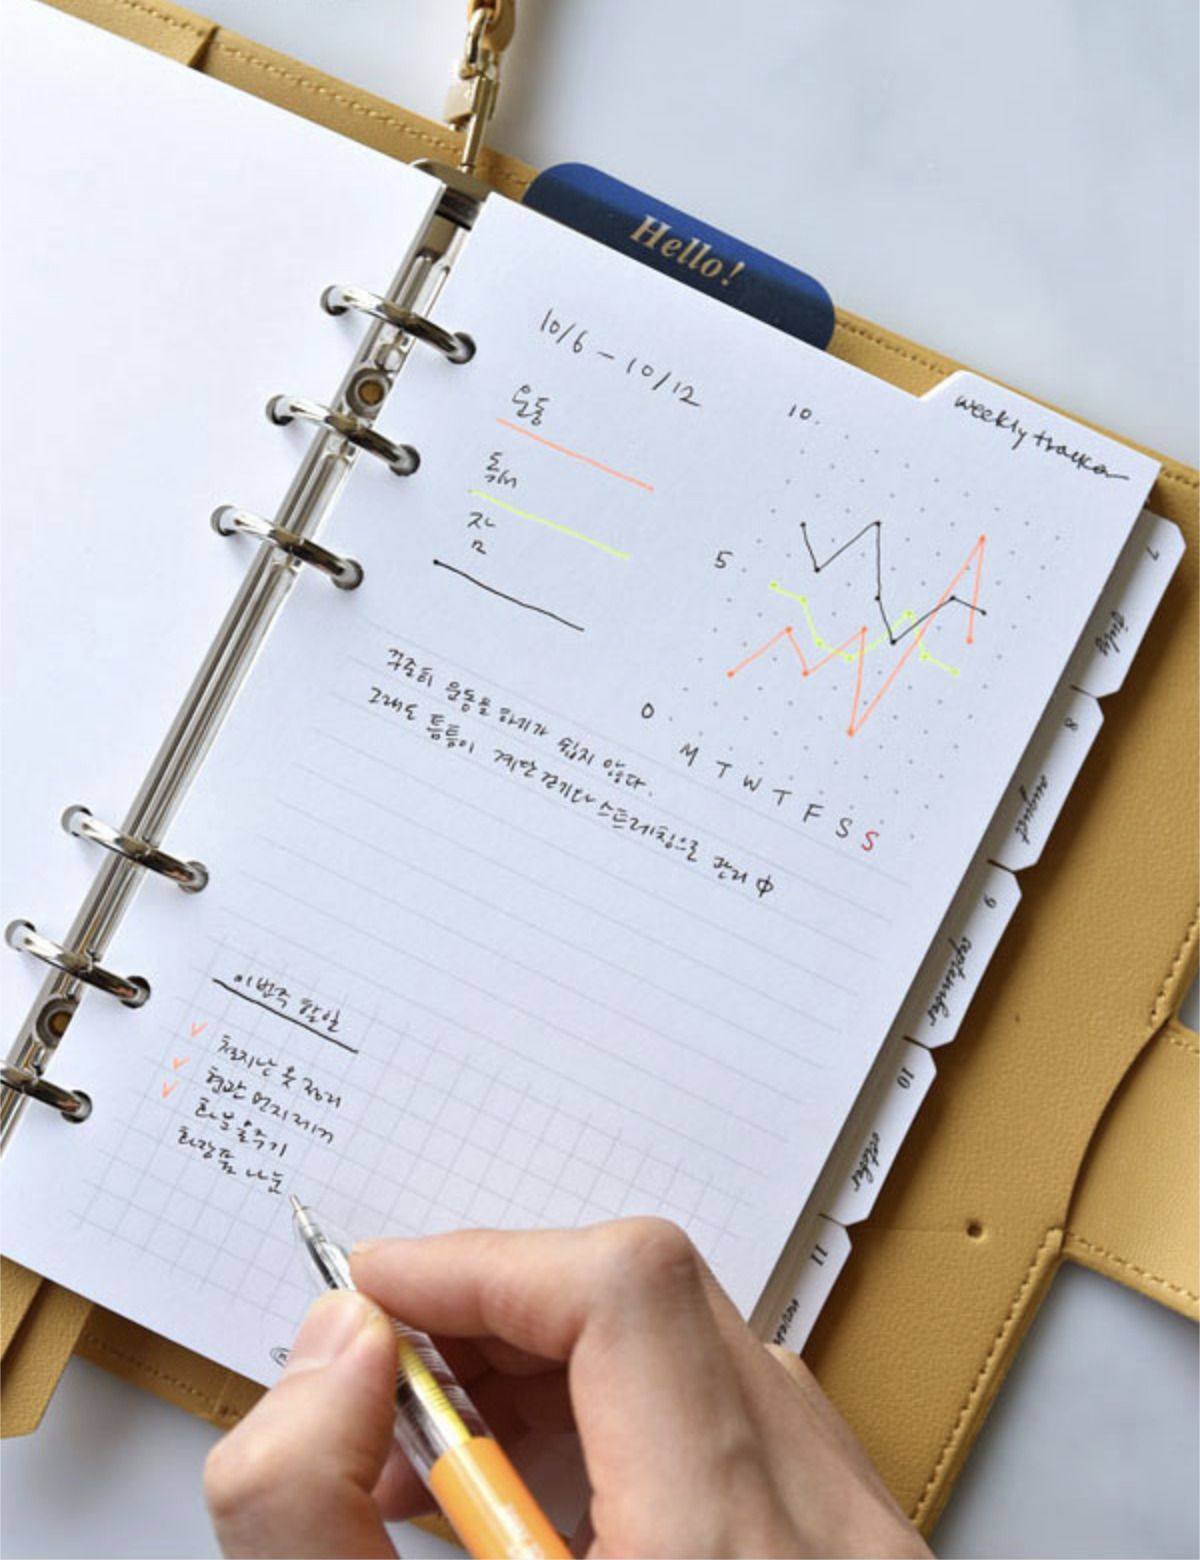 Hello!
weekly tracker
10/6 – 10/12
운동
독서
잠
10
5
0
M T W T F S S
꾸준히 운동을 하기가 쉽지 않다.
그래도 틈틈이 계단 걷기나 스트레칭으로 관리 中
이번주 할일
철지난 옷 정리
현관 먼지제거
화분 물주기
화장품 나눔
7
July
8
august
9
september
10
october
11